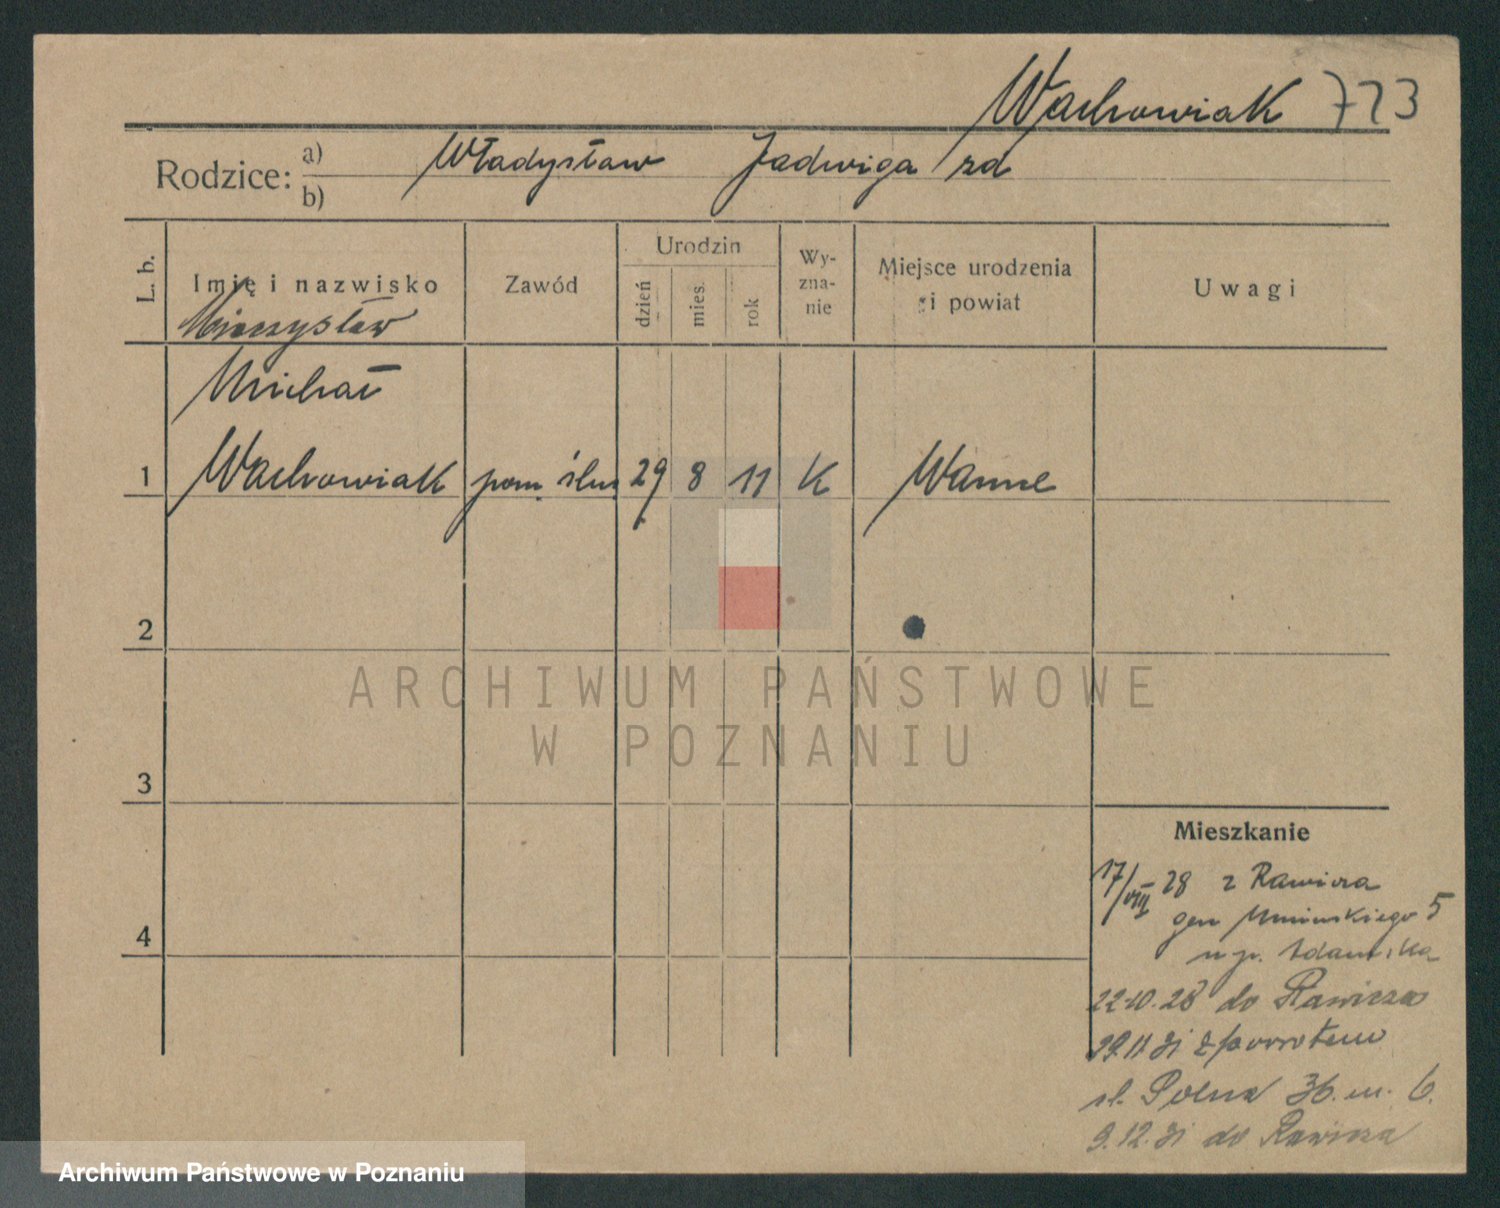 Wachowiak 723
Rodzice: a) Władysław Jadwiga zd
b)
L. b. Imię i nazwisko Zawód Urodzin dzień mies. rok Wyznanie Miejsce urodzenia i powiat Uwagi
Mieczysław
Michał
1 Wachowiak pom. ślus 29 8 11 K Wanne
2
ARCHIWUM PAŃSTWOWE
W POZNANIU
3
4
Mieszkanie
17/VIII 28 z Rawicza
gen Umińskiego 5
u p.
22.10.28 do Rawicza
29.11 31 z powrotem
ul. Polna 36. m. 6.
9.12.31 do Rawicza
Archiwum Państwowe w Poznaniu